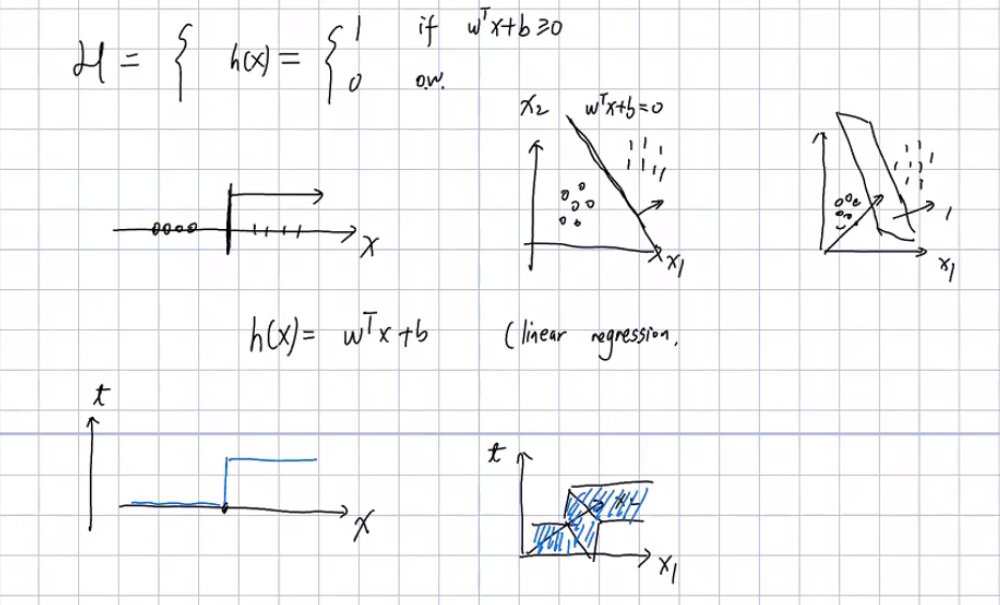 H = { h(x) = { 1 if wᵀx+b ≥ 0
0 o.w.
x₂ wᵀx+b=0
x
x₁
1
x₁
h(x) = wᵀx+b (linear regression.
t
x
t
x₁